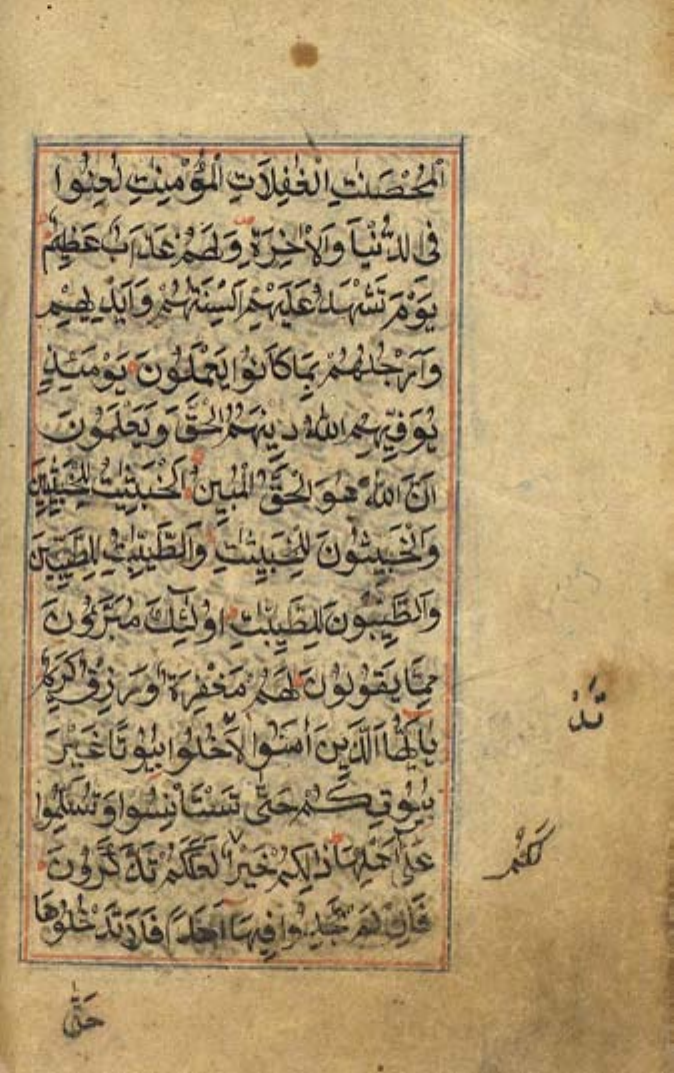 الْمُحْصَنٰتِ الْغٰفِلَاتِ الْمُؤْمِنٰتِ لُعِنُوا
فِی الدُّنْیَا وَالْاٰخِرَةِ وَلَهُمْ عَذَابٌ عَظِیْمٌ
یَوْمَ تَشْهَدُ عَلَیْهِمْ اَلْسِنَتُهُمْ وَاَیْدِیْهِمْ
وَاَرْجُلُهُمْ بِمَا كَانُوا یَعْمَلُونَ یَوْمَئِذٍ
یُوَفِّیْهِمِ اللهُ دِینَهُمُ الْحَقَّ وَیَعْلَمُونَ
اَنَّ اللهَ هُوَ الْحَقُّ الْمُبِینُ اَلْخَبِیْثٰتُ لِلْخَبِیْثِینَ
وَالْخَبِیْثُونَ لِلْخَبِیْثٰتِ وَالطَّیِّبٰتُ لِلطَّیِّبِیْنَ
وَالطَّیِّبُونَ لِلطَّیِّبٰتِ اُولٰئِكَ مُبَرَّءُوْنَ
مِمَّا یَقُوْلُوْنَ لَهُمْ مَغْفِرَةٌ وَرِزْقٌ كَرِیْمٌ
یٰۤاَیُّهَا الَّذِیْنَ اٰمَنُوْا لَا خُلُوا بُیُوْتًا غَیْرَ
تَدْ
بُیُوْتِكُمْ حَتّٰی تَسْتَاْنِسُوْا وَتُسَلِّمُوا
عَلٰۤی اَهْلِهَا ذٰلِكُمْ خَیْرٌ لَعَلَّكُمْ تَذَكَّرُوْنَ
لَكُمْ
فَاِنْ لَمْ تَجِدُوا فِیْهَاۤ اَحَدًا فَلَا تَدْخُلُوْهَا
حَتّٰی